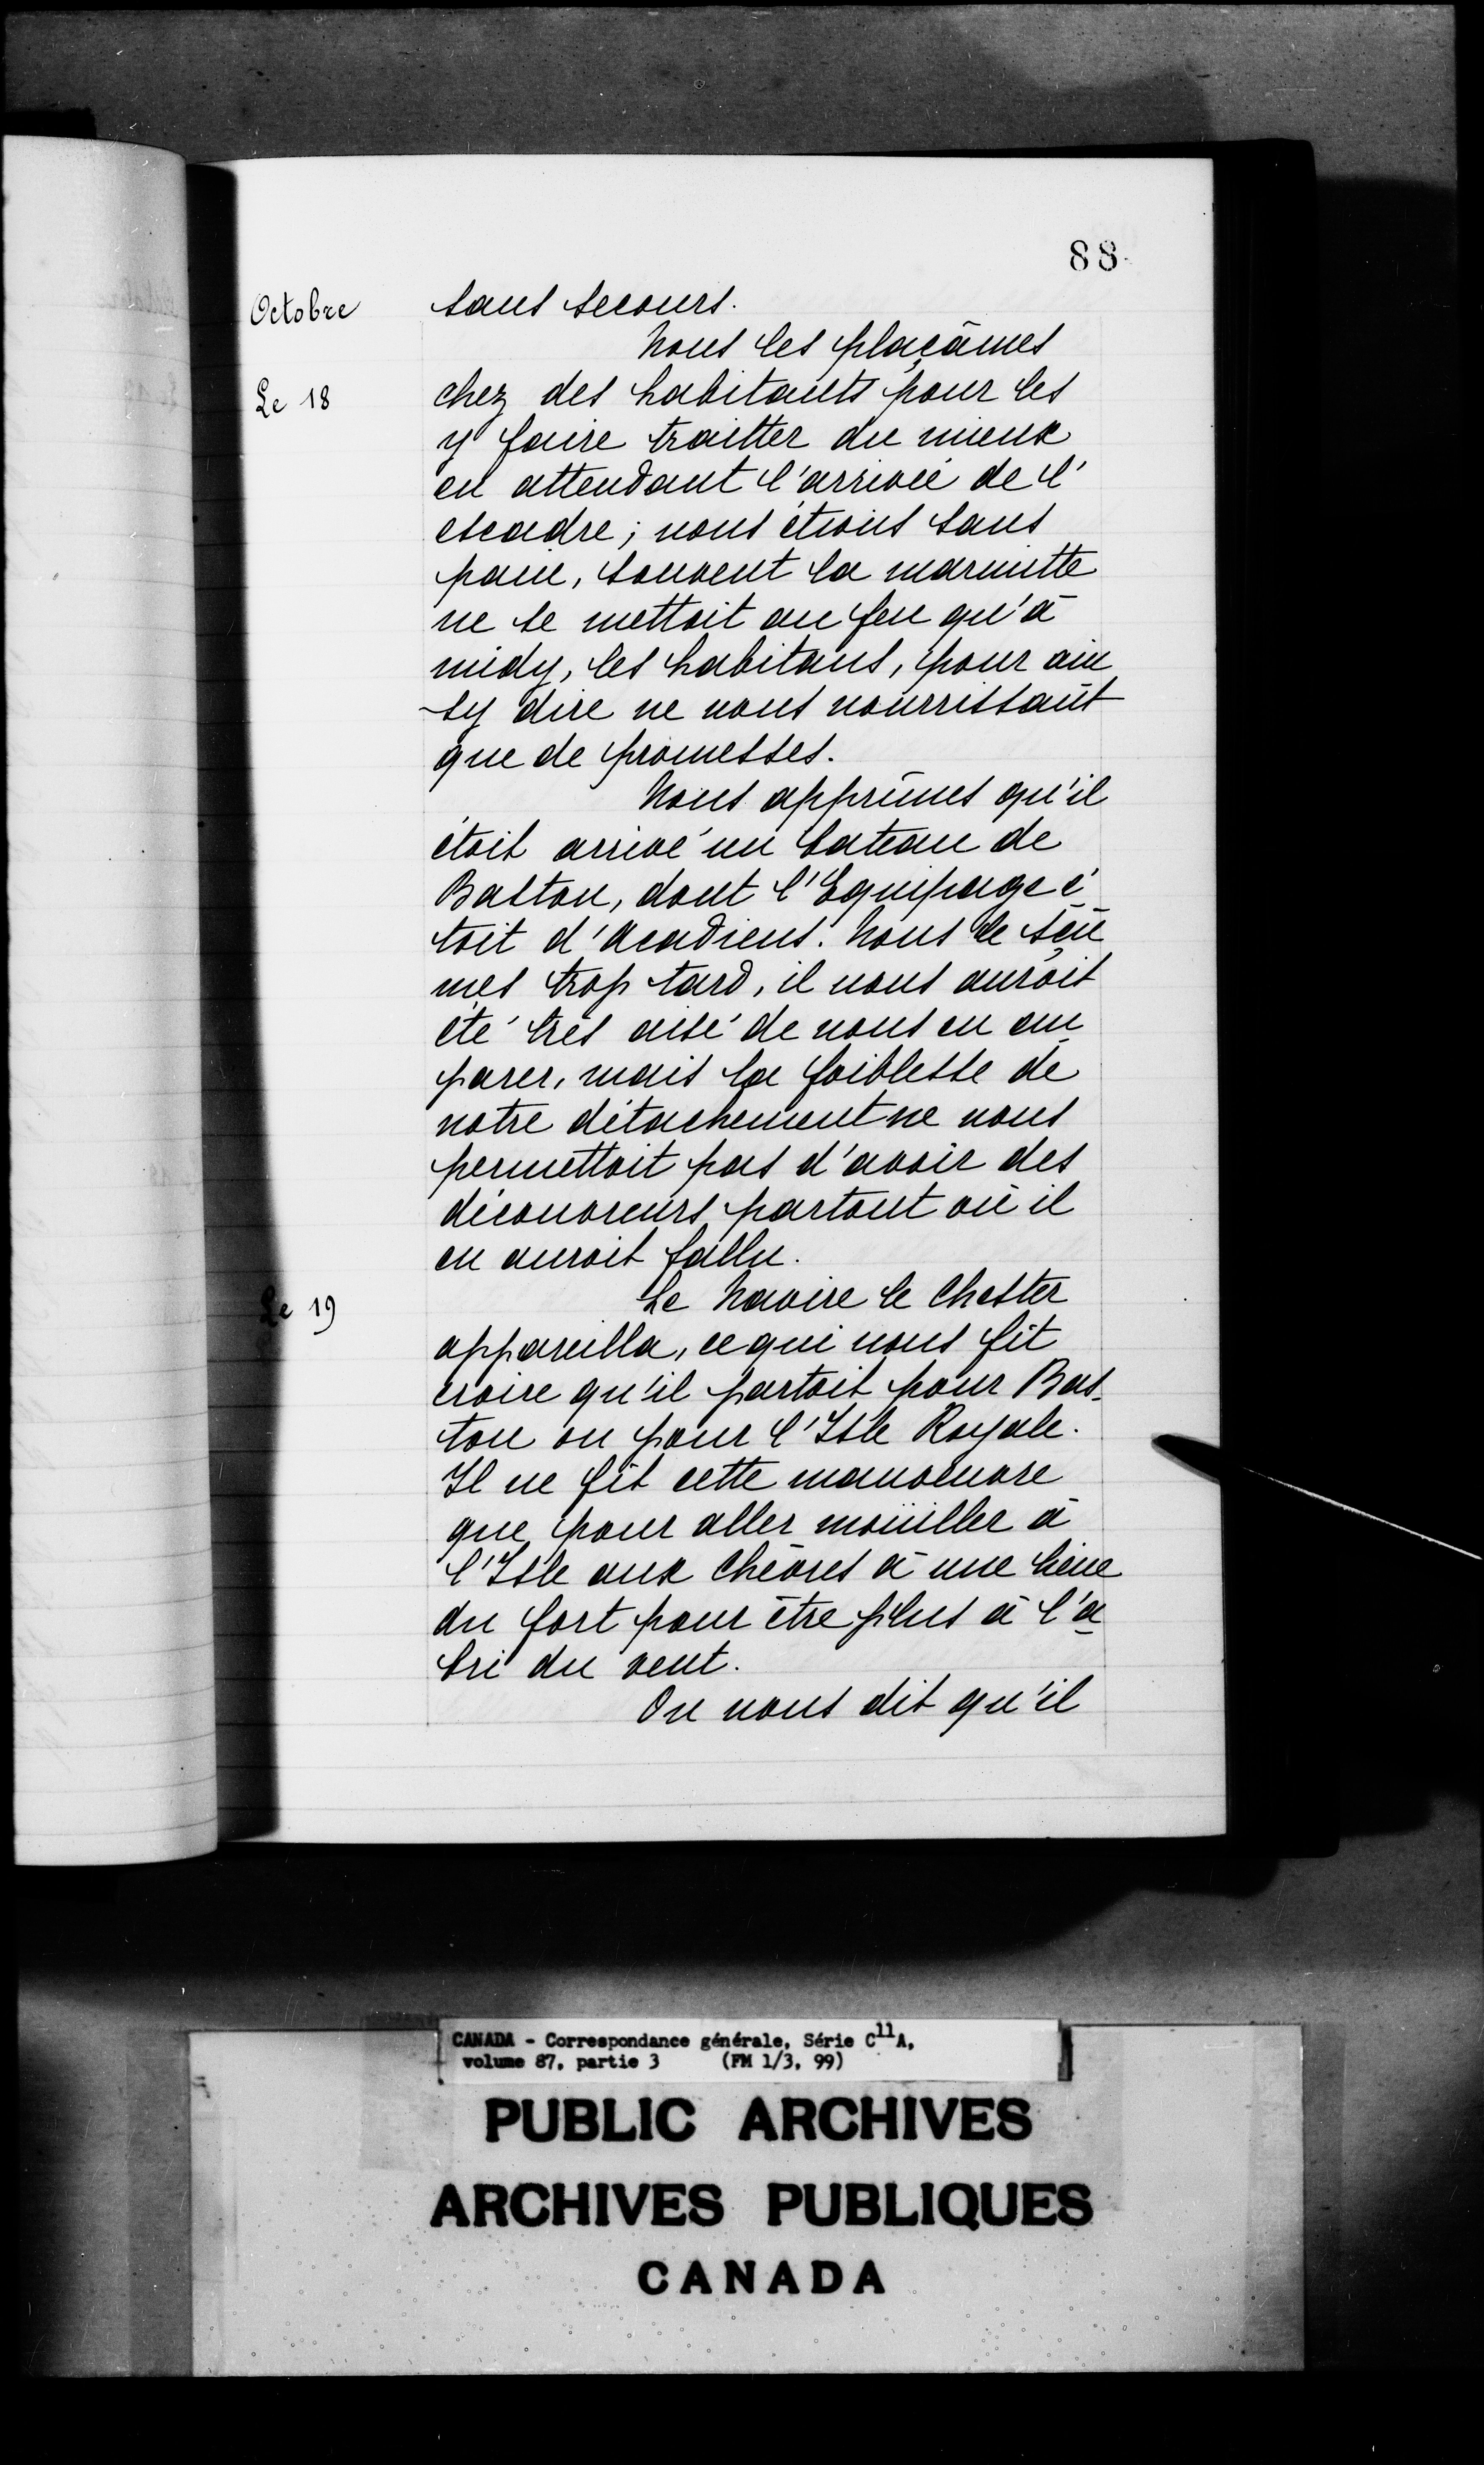 88
Octobre
sans secours.
Nous les plaçâmes
Le 18
chez des habitants pour les
y faire traitter du mieux
en attendant l'arrivée de l'
escadre ; nous étions sans
pain, souvent la marmitte
ne se mettoit au feu qu'à
midy, les habitans, pour ain
-sy dire ne nous nourrissant
que de promesses.
Nous apprîmes qu'il
étoit arrivé un bateau de
Baston, dont l'Equipage é
toit d'Acadiens. Nous le sçû
mes trop tard, il nous auroit
été très aisé de nous en em
parer, mais la foiblesse de
notre détachement ne nous
permettoit pas d'avoir des
découvreurs partout où il
en auroit fallu.
Le 19
Le Navire le Chester
appareilla, ce qui nous fit
croire qu'il partoit pour Bas-
ton ou pour l'Isle Royale.
Il ne fit cette manoeuvre
que pour aller moüiller à
l'Isle aux Chèvres à une lieue
du fort pour être plus à l'a
bri du vent.
On nous dit qu'il
CANADA - Correspondance générale, Série C11A,
volume 87, partie 3 (FM 1/3, 99)
PUBLIC ARCHIVES
ARCHIVES PUBLIQUES
CANADA